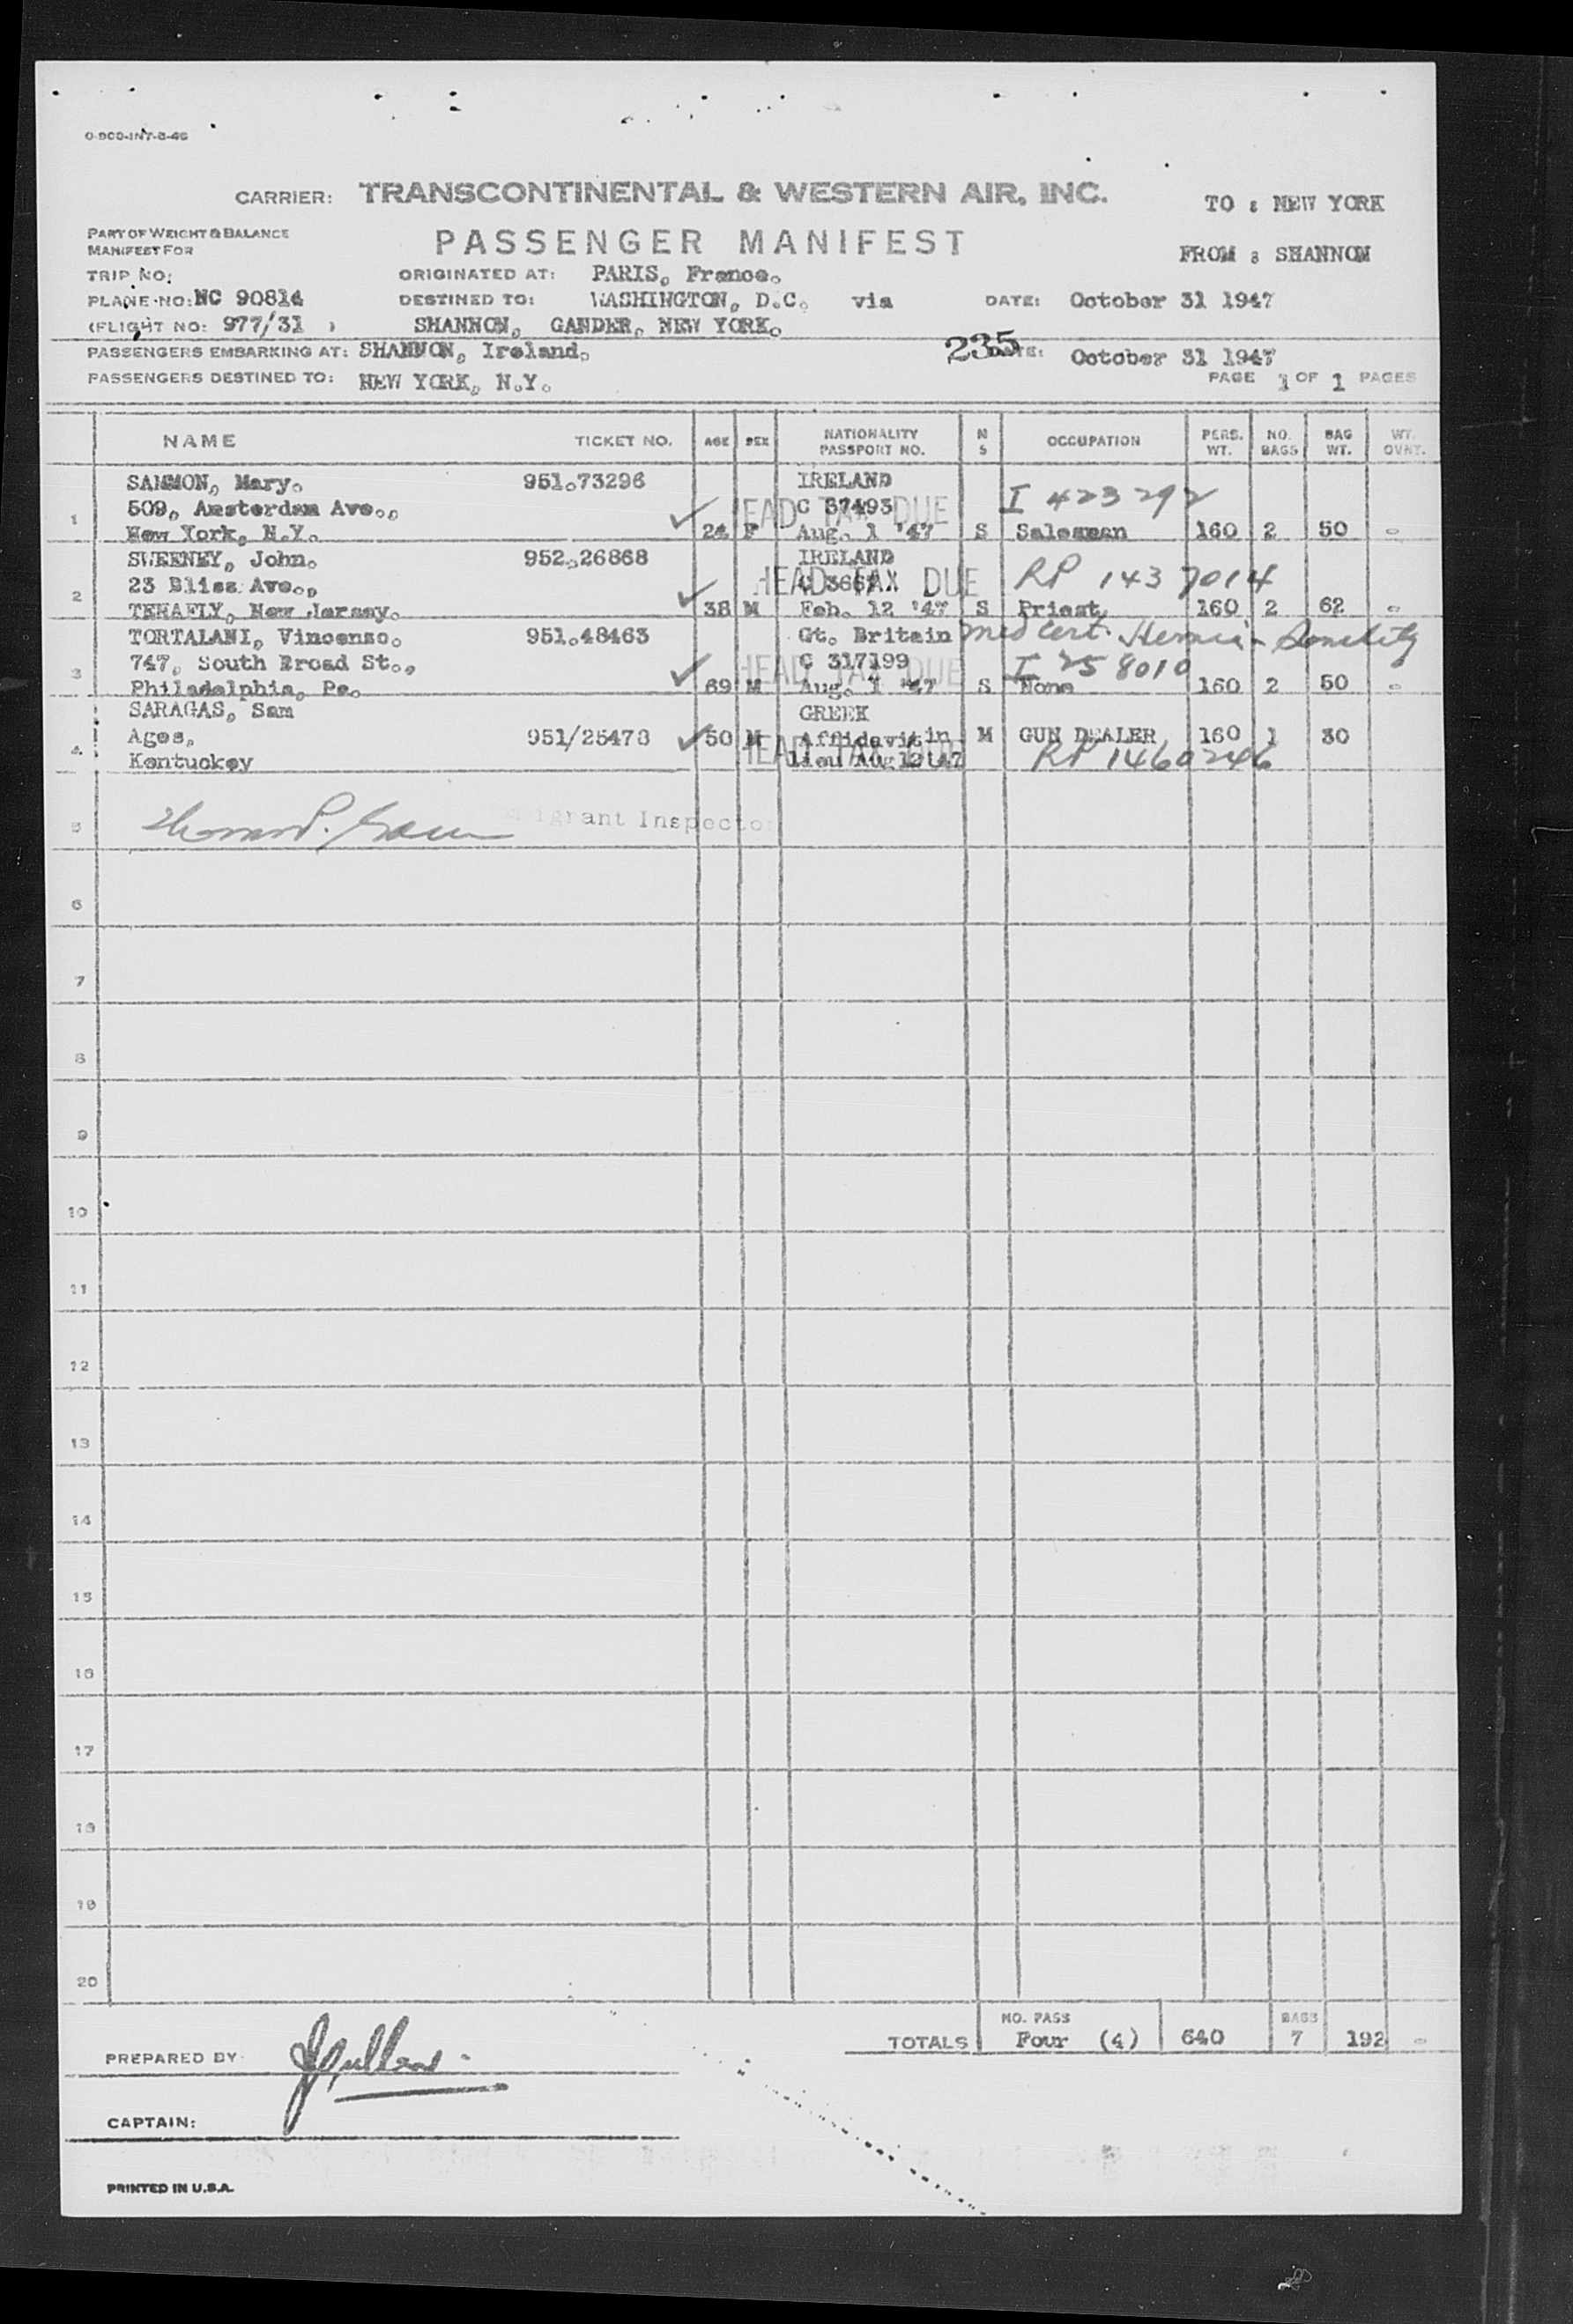 CARRIER: TRANSCONTINENTAL & WESTERN AIR, INC.
TO : NEW YORK
PART OF WEIGHT & BALANCE
MANIFEST FOR
PASSENGER MANIFEST
FROM : SHANNON
TRIP NO:
ORIGINATED AT: PARIS, France.
PLANE NO: NC 90814
DESTINED TO: WASHINGTON, D.C. via
DATE: October 31 1947
(FLIGHT NO: 977/31 )
SHANNON, GANDER, NEW YORK.
PASSENGERS EMBARKING AT: SHANNON, Ireland,
235
DATE: October 31 1947
PASSENGERS DESTINED TO: NEW YORK, N.Y.
PAGE 1 OF 1 PAGES
NAME TICKET NO. AGE SEX NATIONALITY PASSPORT NO. M S OCCUPATION PERS. WT. NO. BAGS BAG WT. WT. OVNT.
SAMMON, Mary. 951.73296 IRELAND
509, Amsterdam Ave., C 37493 HEAD TAX DUE I 423292
1 New York, N.Y. 24 F Aug. 1 '47 S Salesman 160 2 50 -
SWEENEY, John. 952.26868 IRELAND
23 Bliss Ave., HEAD TAX DUE RP 1437014
2 TENAFLY, New Jersey. 38 M Feb. 12 '47 S Priest, 160 2 62 -
TORTALANI, Vincenso. 951.48463 Gt. Britain Med Cert. Hernia -
747, South Broad St., C 317199 HEAD TAX DUE I 258010
3 Philadelphia, Pa. 69 M Aug. 1 '47 S None 160 2 50 -
SARAGAS, Sam GREEK
Ages, 951/25478 50 M Affidavit in M GUN DEALER 160 1 30
4 Kentuckey HEAD TAX DUE lieu Aug 12 '47 RP 1460246
5 Immigrant Inspector
6
7
8
9
10
11
12
13
14
15
16
17
18
19
20
NO. PASS BAGS
TOTALS Four (4) 640 7 192 -
PREPARED BY
CAPTAIN:
PRINTED IN U.S.A.